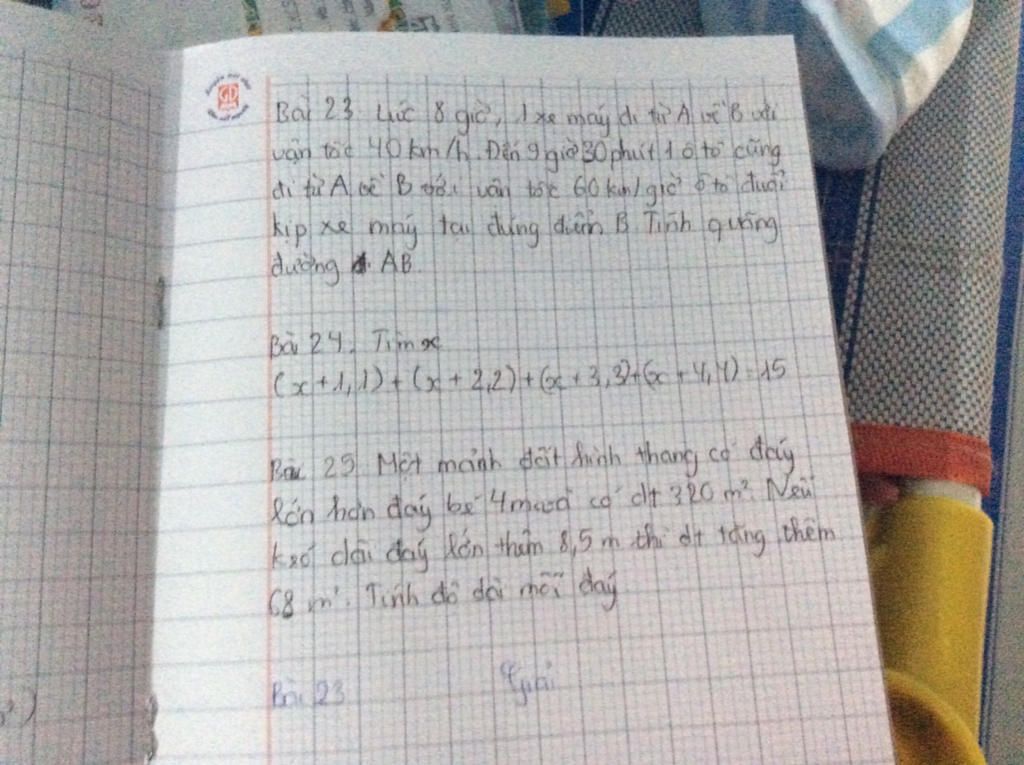 GD
Bài 23 Lúc 8 giờ, 1 xe máy đi từ A về B với
vận tốc 40 km/h. Đến 9 giờ 30 phút 1 ô tô cũng
đi từ A về B với vân tốc 60 km/giờ ô tô đuổi
kịp xe máy tại đúng điểm B Tính quãng
đường AB.
Bài 24. Tìm x
(x+1,1)+(x+2,2)+(x+3,3)+(x+4,4)=15
Bài 25 Một mảnh đất hình thang có đáy
lớn hơn đáy bé 4m và có dt 320 m². Nếu
kéo dài đáy lớn thêm 8,5 m thì dt tăng thêm
68 m². Tính độ dài mỗi đáy
Giải
Bài 23